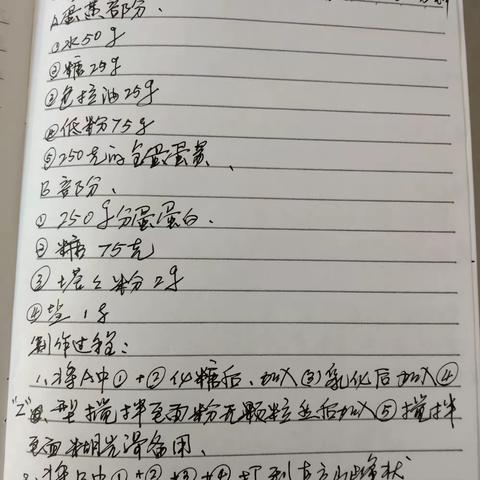 A蛋黄部分、
①水50g
②糖25g
③色拉油25g
④低粉75g
⑤250克的全蛋蛋黄、
B部分、
①250g分蛋蛋白.
②糖75克
③塔塔粉2g
④盐1g
制作过程:
1、将A中①+②化糖后、加入③乳化后加入④
"Z"型搅拌至面粉无颗粒然后加入⑤搅拌
至面糊光滑备用.
2、将B中①+②+③+④打到直立山峰状